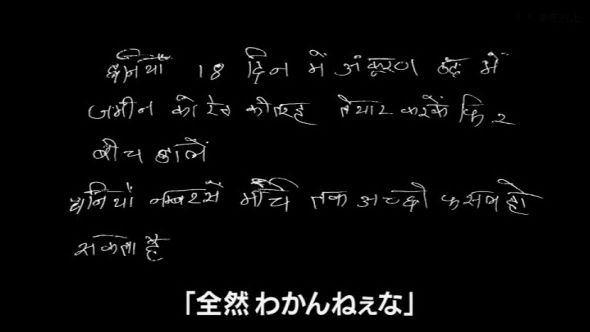 धनियाँ 18 दिन में अंकूरण ठंढ में
जमीन को रेत की तरह तैयार करकें फिर
बीच डालें
धनियाँ नम्बर सें मार्च तक अच्छी फसल हो
सकता है
「全然 わかんねぇな」